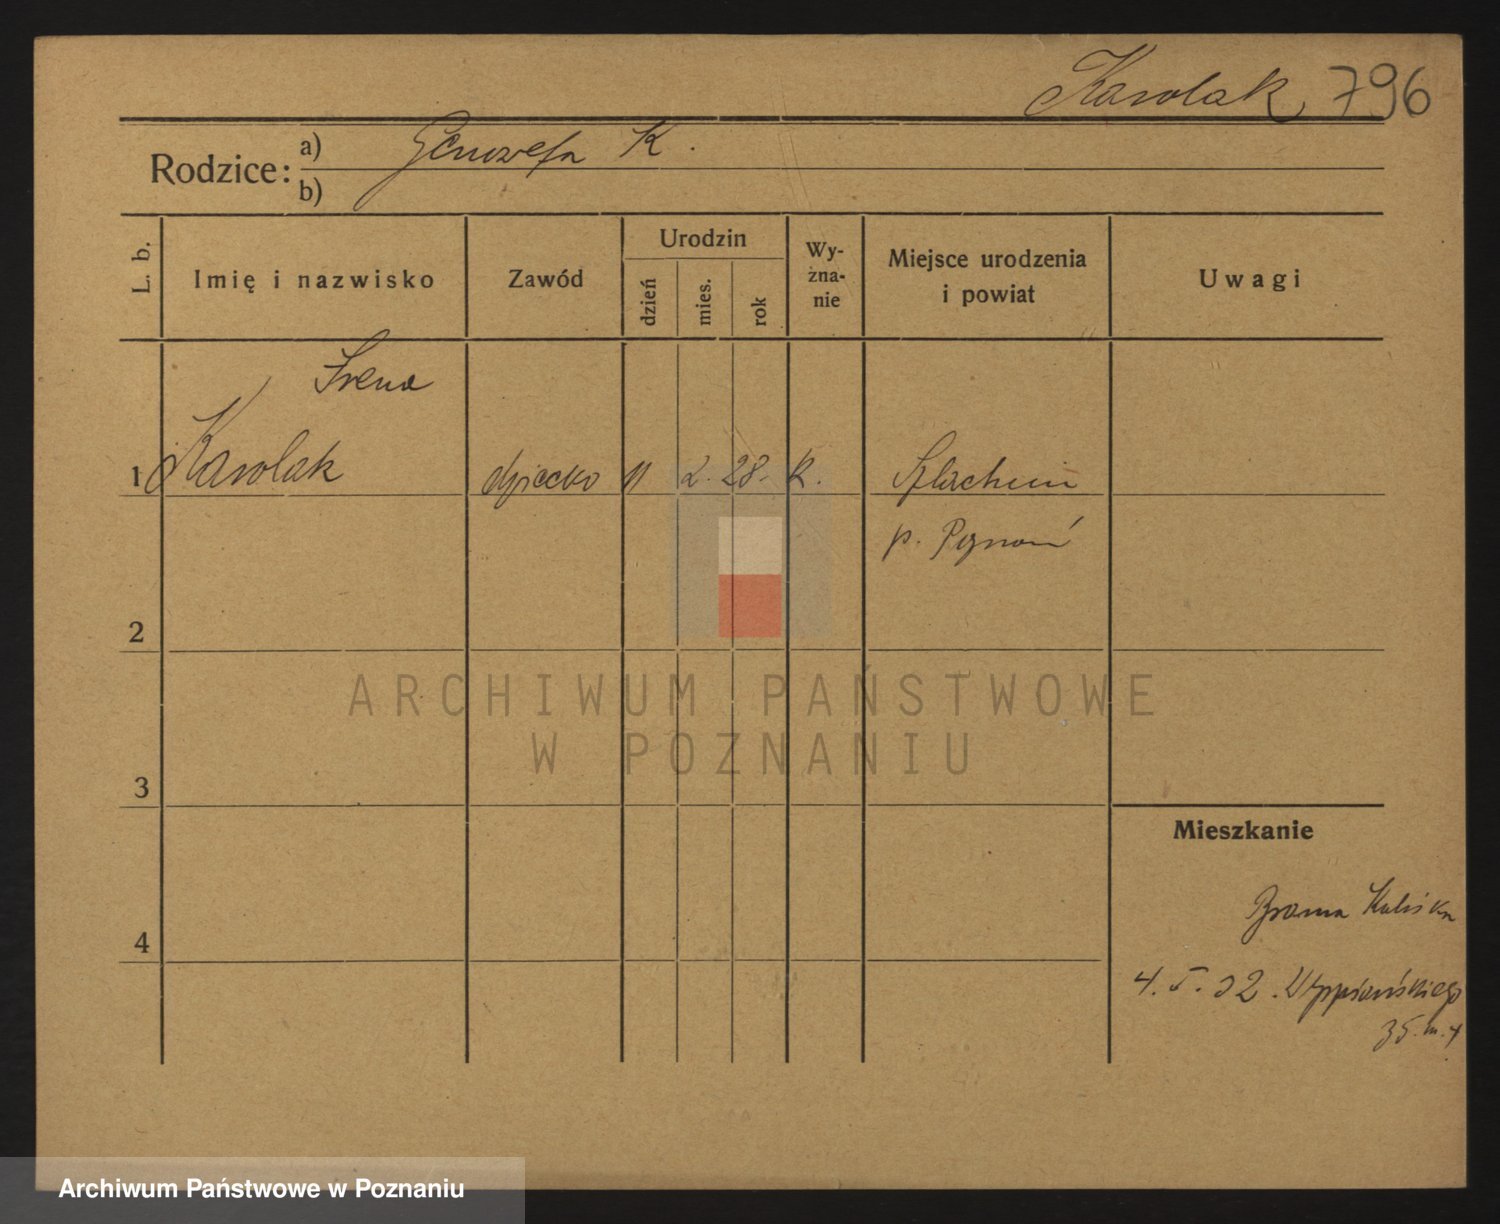 Karolak 796
Rodzice: a) Genowefa K.
b)
L. b.
Imię i nazwisko
Zawód
Urodzin
dzień
mies.
rok
Wy-
zna-
nie
Miejsce urodzenia
i powiat
Uwagi
Irena
1 Karolak dziecko 11 2. 28. k. Szlachcin
p. Poznań
2
3
4
Mieszkanie
Brama Kaliska
4. 5. 32. Wyspiańskiego
35. m. 4
ARCHIWUM PAŃSTWOWE
W POZNANIU
Archiwum Państwowe w Poznaniu